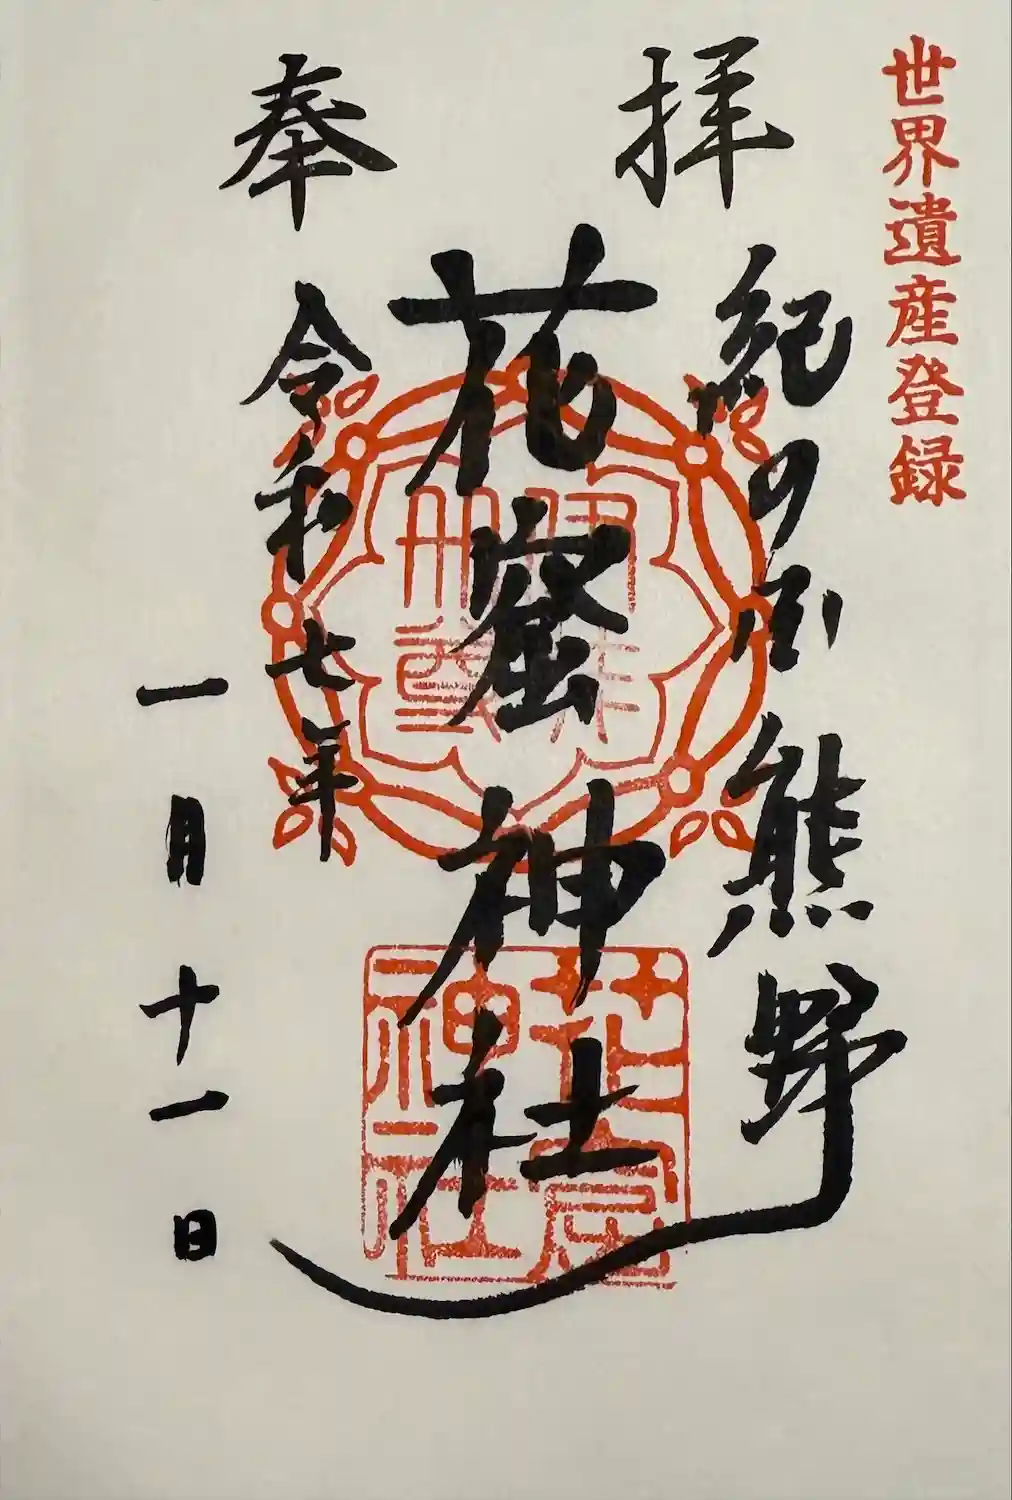 世界遺産登録
奉拝
紀の国熊野
花窟神社
令和七年
一月十一日
花窟神社